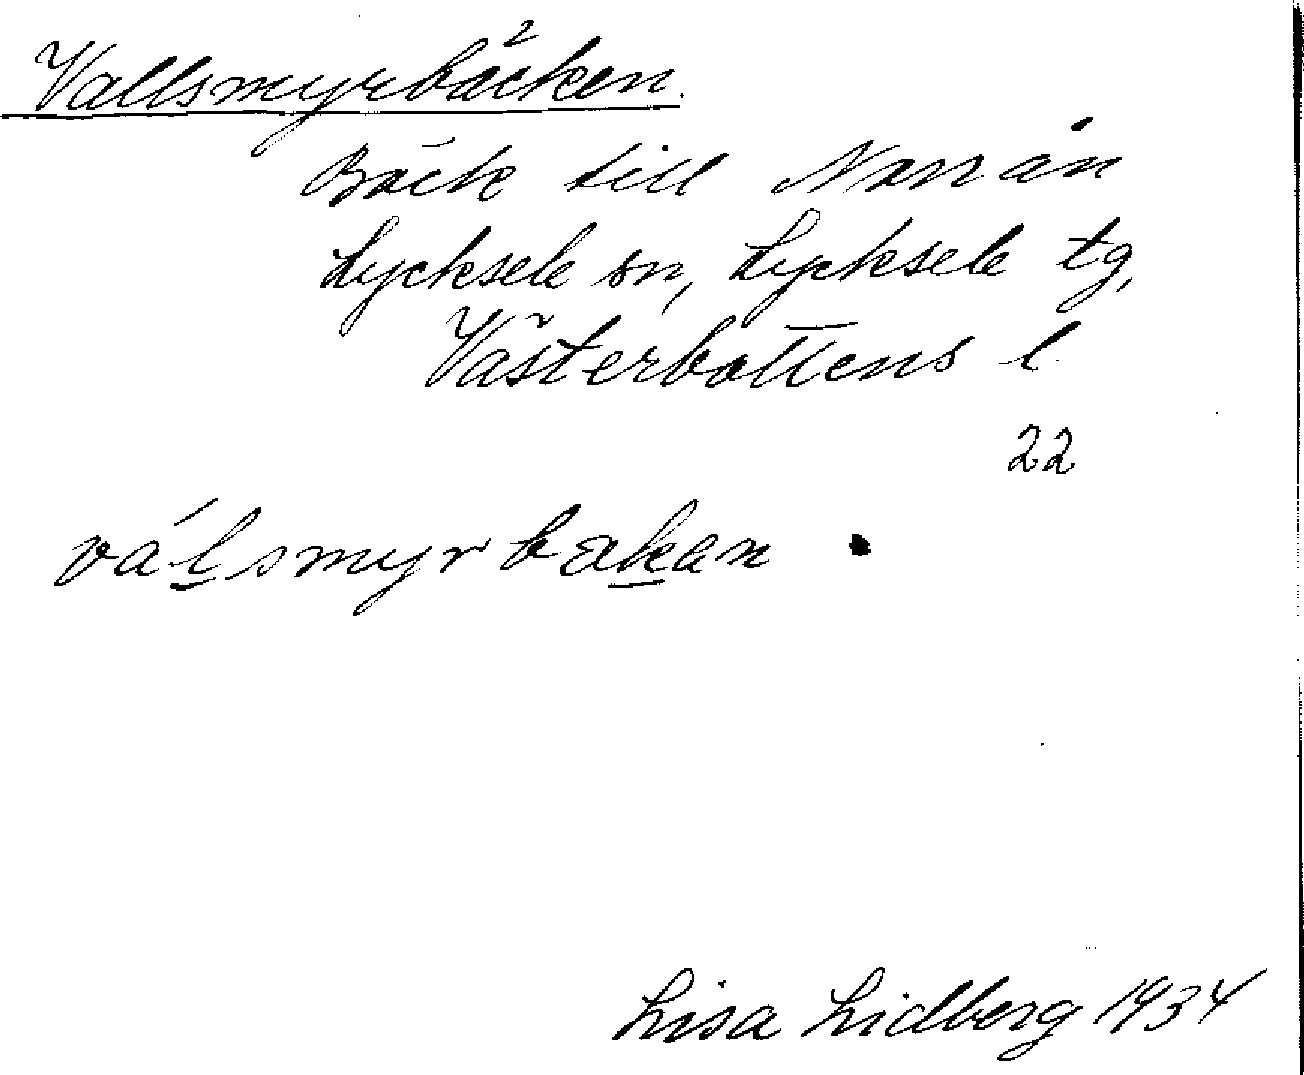 Vallsmyrbäcken.
Bäck till Norrån
Lycksele sn, Lycksele tg,
Västerbottens l
22
válsmyrbakan
Lisa Lidberg 1934